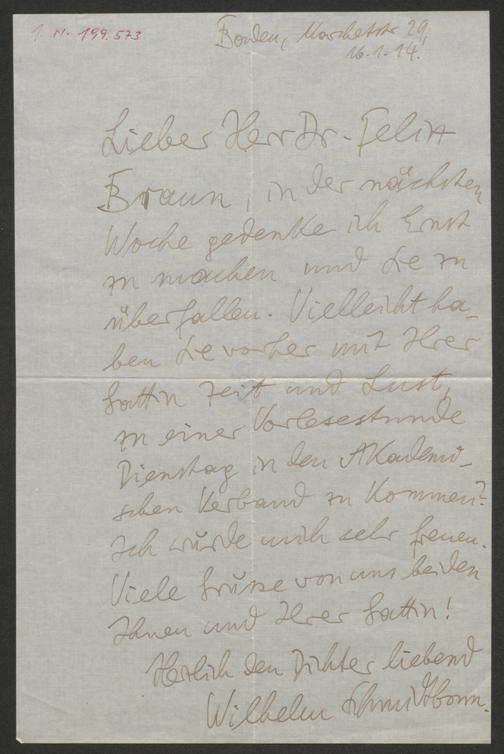 I.N. 199.573
16.1.14.
Lieber Herr Dr. Felix
Braun, in der nächsten
Woche gedenke ich Ernst
zu machen und Sie zu
überfallen. Vielleicht ha-
ben Sie vorher mit Ihrer
Gattin Zeit und Lust,
zu einer Vorlesestunde
Dienstag in den Akademi-
schen Verband zu kommen?
Ich würde mich sehr freuen.
Viele Grüsse von uns beiden
Ihnen und Ihrer Gattin!
Herzlich den Dichter liebend
Wilhelm Schmidtbonn.